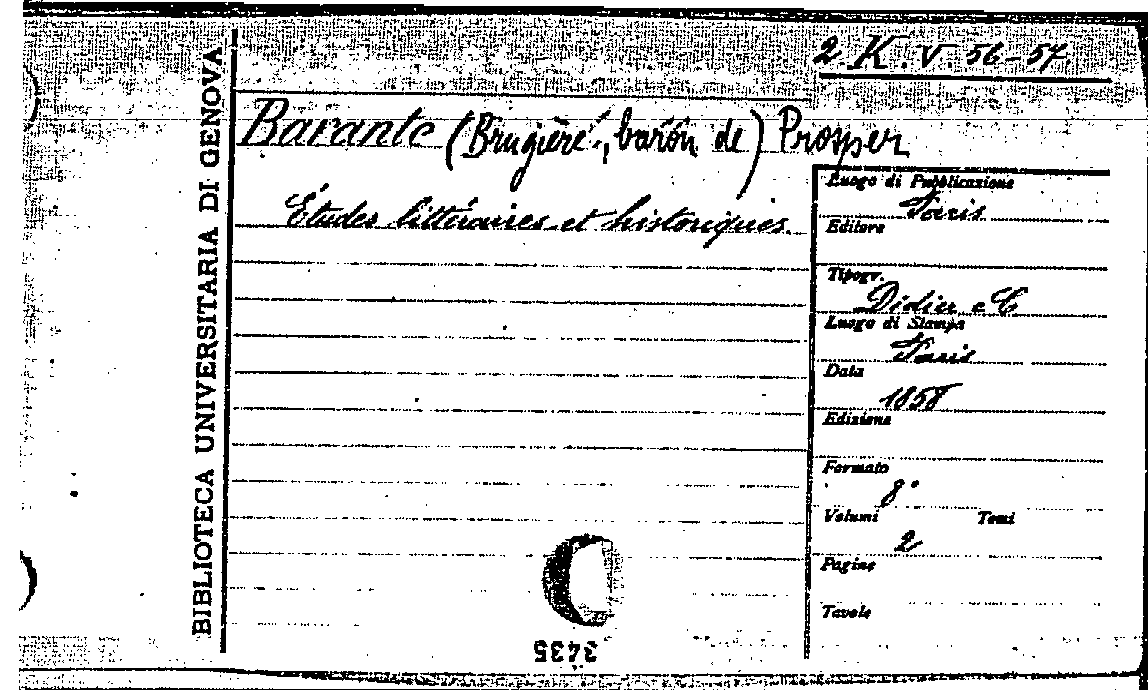 2 K. V 56-57
BIBLIOTECA UNIVERSITARIA DI GENOVA
Barante (Brugière, baron de) Prosper
Études littéraires et historiques.
Luogo di Pubblicazione
Paris
Editore
Tipogr.
Didier e C
Luogo di Stampa
Paris
Data
1858
Edizione
Formato
8°
Volumi Tomi
2
Pagine
Tavole
3435